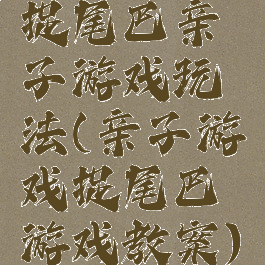 捉尾巴亲
子游戏玩
法(亲子游
戏捉尾巴
游戏教案)